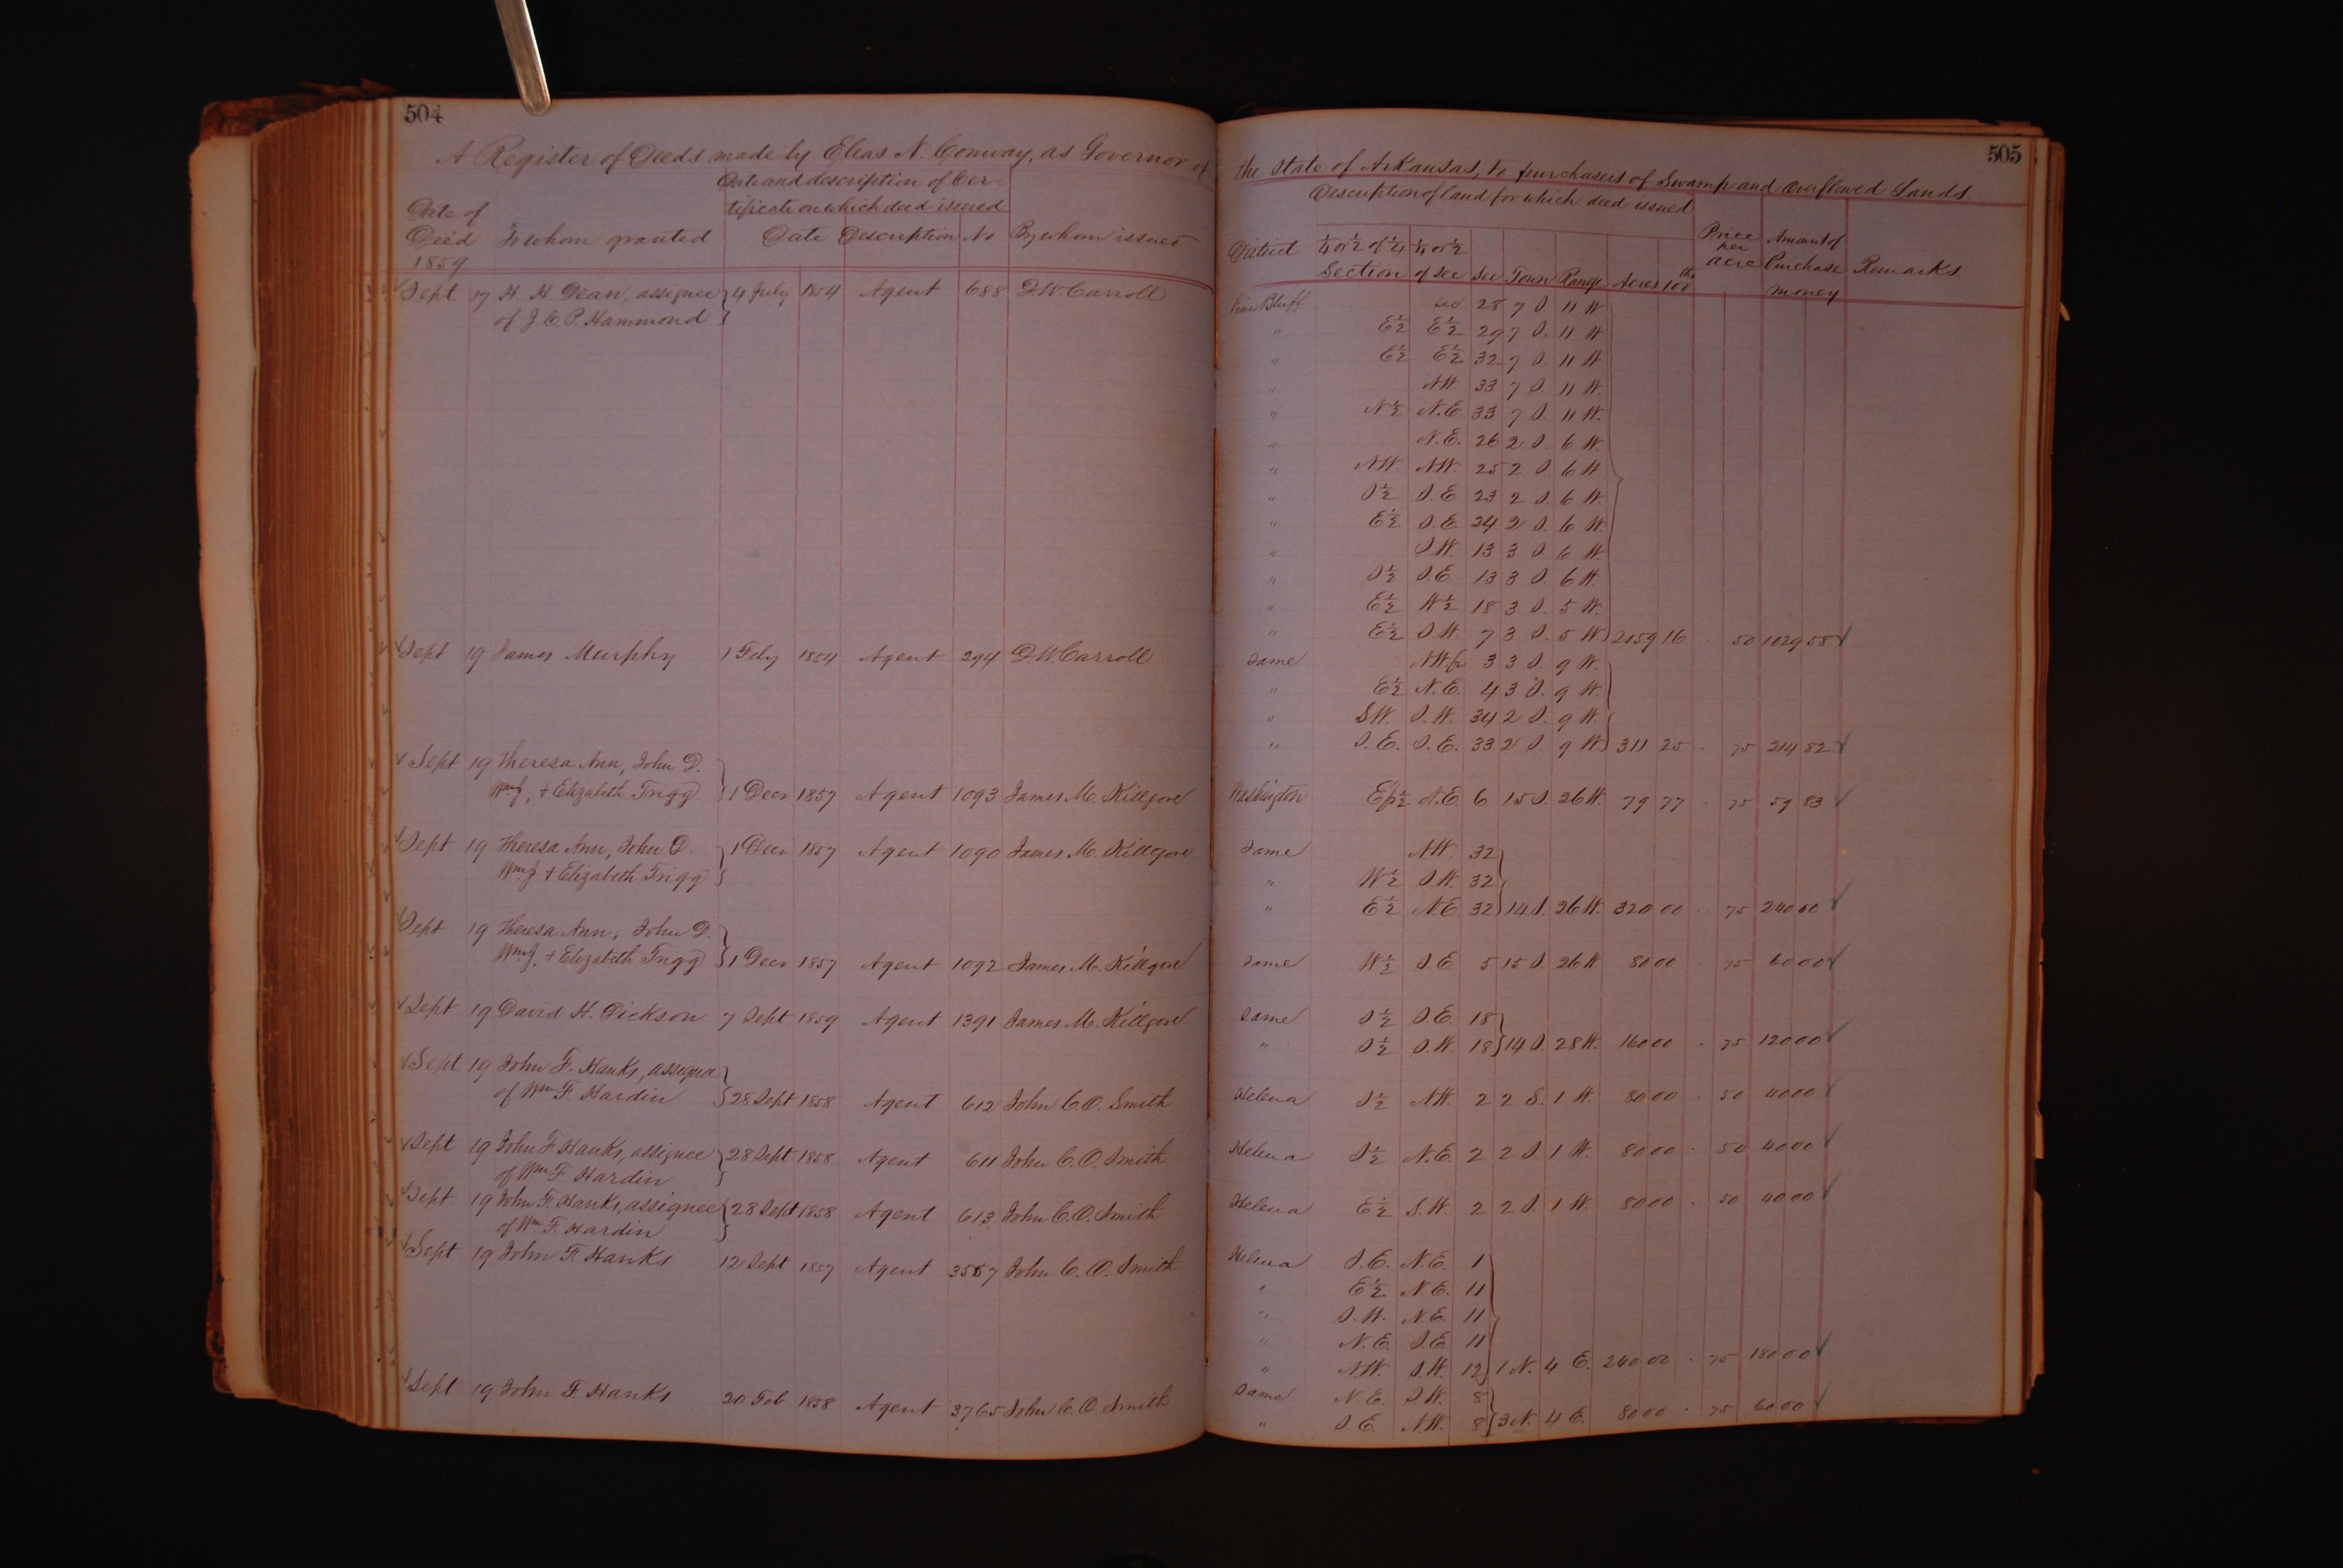 504
A Register of Deeds made by Elias N. Conway, as Governor of
Date and description of Cer-
tificate on which deed issued
Date of Deed To whom granted Date Description No By whom issued
1859
Sept 17 H. H. Dean, assignee 4 July 1854 Agent 688 D. W. Carroll
of J. C. P. Hammond
Sept 19 James Murphy 1 Feby 1854 Agent 294 D. W. Carroll
Sept 19 Theresa Ann, John D.
Wm J. + Elizabeth Trigg 1 Decr 1857 Agent 1093 James M. Killgore
Sept 19 Theresa Ann, John D. 1 Decr 1857 Agent 1090 James M. Killgore
Wm J. + Elizabeth Trigg
Sept 19 Theresa Ann, John D.
Wm J. + Elizabeth Trigg 1 Decr 1857 Agent 1092 James M. Killgore
Sept 19 David H. Dickson 7 Sept 1859 Agent 1391 James M. Killgore
Sept 19 John F. Hanks, assignee
of Wm F. Hardin 28 Sept 1858 Agent 612 John C. O. Smith
Sept 19 John F. Hanks, assignee 28 Sept 1858 Agent 611 John C. O. Smith
of Wm F. Hardin
Sept 19 John F. Hanks, assignee 28 Sept 1858 Agent 613 John C. O. Smith
of Wm F. Hardin
Sept 19 John F. Hanks 12 Sept 1857 Agent 3557 John C. O. Smith
Sept 19 John F. Hanks 20 Feb 1858 Agent 3765 John C. O. Smith
505
the State of Arkansas, to purchasers of Swamp and Overflowed Lands
Description of land for which deed issued
District 1/4 or 1/2 of 1/4 Section 1/4 or 1/2 of Sec Sec Town Range Acres 100ths Price per acre Amount of Purchase money Remarks
Pine Bluff sec 28 7 S. 11 W.
" E 1/2 E 1/2 29 7 S. 11 W.
" E 1/2 E 1/2 32 7 S. 11 W.
" NW 33 7 S. 11 W.
" N 1/2 N.E. 33 7 S. 11 W.
" N.E. 26 2 S. 6 W.
" NW. NW. 25 2 S. 6 W.
" S 1/2 S.E. 23 2 S. 6 W.
" E 1/2 S.E. 24 2 S. 6 W.
" S.W. 13 3 S. 6 W.
" S 1/2 S.E. 13 3 S. 6 W.
" E 1/2 W 1/2 18 3 S. 5 W.
" E 1/2 S.W. 7 3 S. 5 W. 2059 16 . 50 1029 58
Same NW. fr 3 3 S. 9 W.
" E 1/2 N.E. 4 3 S. 9 W.
" S.W. S.W. 34 2 S. 9 W.
" S.E. S.E. 33 2 S. 9 W. 311 25 . 75 214 82
Washington E fr 1/2 N.E. 6 15 S. 26 W. 79 77 . 75 59 83
Same NW. 32
" W 1/2 S.W. 32
" E 1/2 N.E. 32 14 S. 26 W. 320 00 . 75 240 00
Same W 1/2 S.E. 5 15 S. 26 W 80 00 . 75 60 00
Same S 1/2 S.E. 18
" S 1/2 S.W. 18 14 S. 28 W. 160 00 . 75 120 00
Helena S 1/2 NW. 2 2 S. 1 W. 80 00 . 50 40 00
Helena S 1/2 N.E. 2 2 S. 1 W. 80 00 . 50 40 00
Helena E 1/2 S.W. 2 2 S. 1 W. 80 00 . 50 40 00
Helena S.E. N.E. 1
" E 1/2 N.E. 11
" S.W. N.E. 11
" N.E. S.E. 11
" N.W. S.W. 12 1 N. 4 E. 240 00 . 75 180 00
Same N.E. S.W. 8
" S.E. N.W. 8 3 N. 4 E. 80 00 . 75 60 00